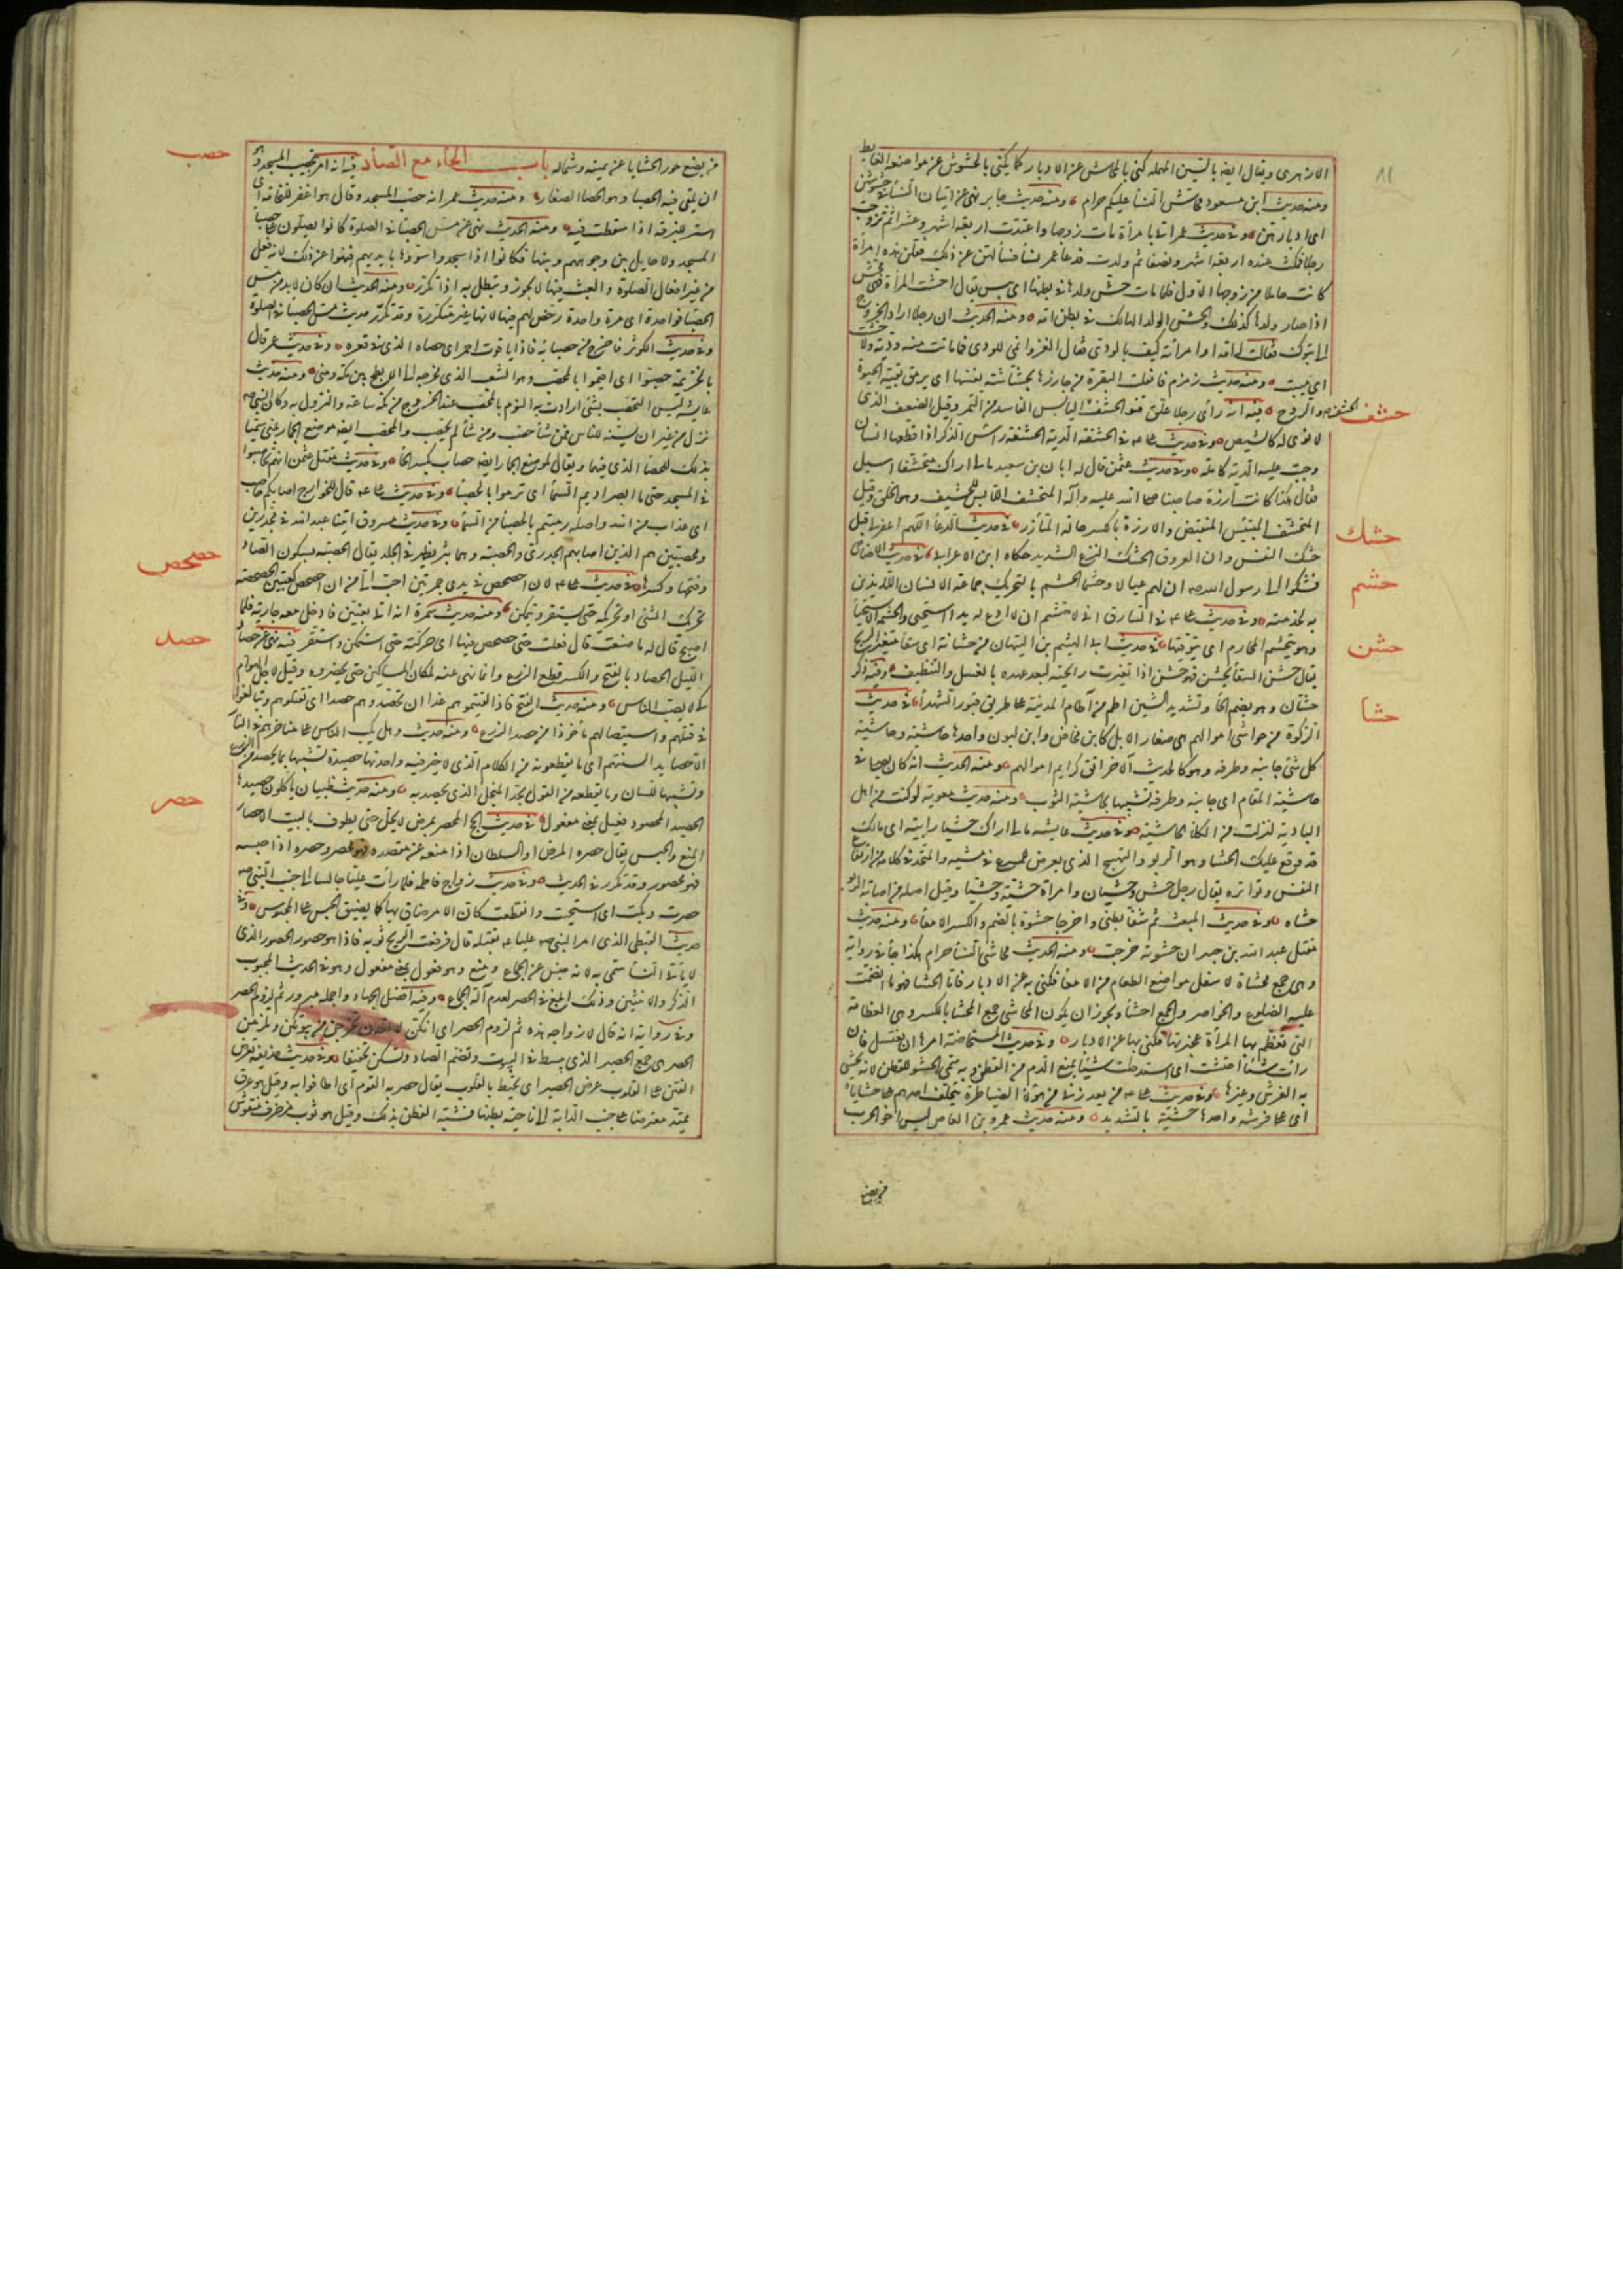 الازهرى ويقال ايضا بالسين المهملة كنى بالمحاش عن الادبار كما يكنى بالحشوش عن مواضع الغايط
ومنه حديث ابن مسعود محاش النساء عليكم حرام ومنه حديث جابر نهى عن اتيان النساء فى حشوشهن
اى ادبارهن وفى حديث عمر اتى بامرأة مات زوجها واعتدت اربعة اشهر وعشرا ثم تزوجت
رجلا فمكثت عنده اربعة اشهر ونصفا ثم ولدت فدعا عمر نساء فسألهن عن ذلك فقلن هذه امرأة
كانت حاملا من زوجها الاول فلما مات حش ولدها فى بطنها اى يبس يقال احشت المرأة فهى محش
اذا صار ولدها كذلك والحش الولد الهالك فى بطن امه ومنه الحديث ان رجلا اراد الخروج
الى تبوك فقالت له امه او امرأته كيف بالودى فقال الغزو انمى للودى فما ماتت منه ودية ولا حشت
اى يبست ومنه حديث زمزم فانفلتت البقرة من جازرها بحشاشة نفسها اى برمق بقية الحيوة
والروح فيه انه رأى رجلا علق قنو حشف الحشف اليابس الفاسد من التمر وقيل الضعيف الذى
حشف
لا نوى له كالشيص وفى حديث على عه فى الحشفة الدية الحشفة راس الذكر اذا قطعها انسان
وجبت عليه الدية كاملة وفى حديث عثمن قال له ابان بن سعيد مالى اراك متحشفا اسبل
فقال هكذا كانت ازرة صاحبنا صلى الله عليه وآله المتحشف اللابس للحشيف وهو الخلق وقيل
المتحشف المبتئس المتقبض والازرة بالكسر حالة المتأزر فى حديث الدعاء اللهم اغفر لى قبل
حشك
حشك النفس وان العروق الحشك النزع الشديد حكاه ابن الاعرابى فى حديث الاضاحى
فشكوا الى رسول الله ص ان لهم عيالا وحشما الحشم بالتحريك جماعة الانسان اللايذين
حشم
به لخدمته وفى حديث على عه فى السارق انى لاحتشم ان لا ادع له يدا استحيى والحشمة الاستحياء
وهو يتحشم المحارم اى يتوقيها فى حديث ابى الهيثم بن التيهان من حشانة اى سقاء متغير الريح
حشن
يقال حشن السقاء يحشن فهو حشن اذا تغيرت رايحته لبعد عهده بالغسل والتنظيف وفيه ذكر
حشان وهو بضم الحاء وتشديد الشين اطم من آطام المدينة على طريق قبور الشهداء فى حديث
حشا
الزكوة من حواشى اموالهم هى صغار الابل كابن مخاض وابن لبون واحدها حاشية وحاشية
كل شئ جانبه وطرفه وهو كالحديث الآخر اتق كرايم اموالهم ومنه الحديث انه كان يصلى فى
حاشية المقام اى جانبه وطرفه تشبيها بحاشية الثوب ومنه حديث معوية لو كنت من اهل
البادية لنزلت من الكلاء الحاشية وفى حديث عايشة مالى اراك حشيا رابية اى مالك
قد وقع عليك الحشا وهو الربو والنهيج الذى يعرض للمسرع فى مشيه والمحتد فى كلامه من ارتفاع
النفس وتواتره يقال رجل حشى وحشيان وامرأة حشية وحشيا وقيل اصله من اصابة الربو
حشاه وفى حديث المبعث ثم شقا بطنى واخرجا حشوة بالضم والكسر الامعاء ومنه حديث
مقتل عبد الله بن جبير ان حشوته خرجت ومنه الحديث محاشى النساء حرام هكذا جاء فى رواية
وهى جمع محشاة لاسفل مواضع الطعام من الامعاء فكنى به عن الادبار فاما الحشا فهو ما انضمت
عليه الضلوع والخواصر والجمع احشاء ويجوز ان يكون المحاشى جمع المحشى بالكسر وهى العظامة
التى تعظم بها المرأة عجيزتها فكنى بها عن الادبار وفى حديث المستحاضة امرها ان تغتسل فان
رأت شيئا احتشت اى استدخلت شيئا يمنع الدم من القطن وبه سمى الحشو للقطن لانه يحشى
به الفرش وغيرها وفى حديث على عه من يعذرنى من هؤلاء الضياطرة يتخلف احدهم على حشاياه
اى على فرشه واحدها حشية بالتشديد ومنه حديث عمرو بن العاص ليس اخو الحرب
من يضع
من يضع خور الحشايا عن يمينه وشماله باب الحاء مع الصاد فيه انه امر بتحصيب المسجد وهو
حصب
ان يلقى فيه الحصباء وهو الحصا الصغار ومنه حديث عمر انه حصب المسجد وقال هو اغفر للنخامة اى
استر للبزقة اذا سقطت فيه ومنه الحديث نهى عن مس الحصباء فى الصلوة كانوا يصلون على حصباء
المسجد ولا حايل بين وجوههم وبينها فكانوا اذا سجدوا سووها بايديهم فنهوا عن ذلك لانه فعل
من غير افعال الصلوة والعبث فيها لا يجوز وتبطل به اذا تكرر ومنه الحديث ان كان لا بد من مس
الحصباء فواحدة اى مرة واحدة رخص لهم فيها لانها غير متكررة وقد تكرر حديث مس الحصباء فى الصلوة
وفى حديث الكوثر فاخرج من حصبائه فاذا ياقوت احمر اى حصاه الذى فى قعره وفى حديث عمر قال
يا لخزيمة حصبوا اى اقيموا بالمحصب وهو الشعب الذى مخرجه الى الابطح بين مكة ومنى ومنه حديث
عايشة ليس التحصيب بشئ ارادت به النوم بالمحصب عند الخروج من مكة ساعة والنزول به وكان النبى ص
نزله من غير ان يسنه للناس فمن شاء حصب ومن شاء لم يحصب والمحصب ايضا موضع الجمار بمنى سميا
بذلك للحصا الذى فيهما ويقال لموضع الجمار ايضا حصاب بكسر الحاء وفى حديث مقتل عثمن انهم تحاصبوا
فى المسجد حتى ما ابصر اديم السماء اى تراموا بالحصباء وفى حديث على عه قال للخوارج اصابكم حاصب
اى عذاب من الله واصله رميتم بالحصباء من السماء وفى حديث مسروق اتينا عبد الله فى مجدرين
ومحصبين هم الذين اصابهم الجدرى والحصبة وهما بثر يظهر فى الجلد يقال الحصبة بسكون الصاد
وفتحها وكسرها فى حديث على عه لان احصحص فى يدى جمرتين احب الى من ان احصحص كعبتين الحصحصة
حصحص
تحريك الشئ او تحركه حتى يستقر ويتمكن ومنه حديث سمرة انه اتى بعنين فادخل معه جارية فلما
اصبح قال له ما صنعت قال فعلت حتى حصحص فيها اى حركته حتى استمكن واستقر فيه نهى عن حصاد
حصد
الليل الحصاد بالفتح والكسر قطع الزرع وانما نهى عنه لمكان المساكين حتى يحضروه وقيل لاجل الهوام
كى لا تصيب الناس ومنه حديث الفتح فاذا لقيتموهم غدا ان تحصدوهم حصدا اى تقتلوهم وتبالغوا
فى قتلهم واستيصالهم مأخوذا من حصد الزرع ومنه حديث وهل يكب الناس على مناخرهم فى النار
الا حصايد السنتهم اى ما يقطعونه من الكلام الذى لا خير فيه واحدتها حصيدة تشبيها بما يحصد من الزرع
وتشبيها للسان وما يقطعه من القول بحد المنجل الذى يحصد به ومنه حديث ظبيان ياكلون حصيدها
الحصيد المحصود فعيل بمعنى مفعول فى حديث الحج المحصر بمرض لا يحل حتى يطوف بالبيت الاحصار
حصر
المنع والحبس يقال حصره المرض او السلطان اذا منعه عن مقصده فهو محصر وحصره اذا حبسه
فهو محصور وقد تكرر فى الحديث وفى حديث زواج فاطمة فلما رأت عليا جالسا الى جنب النبى ص
حصرت وبكت اى استحيت وانقطعت كان الامر ضاق بها كما يضيق الحبس على المحبوس وفى
حديث القبطى الذى امر النبى ص عليا عه بقتله قال فرفعت الريح ثوبه فاذا هو حصور الحصور الذى
لا ياتى النساء سمى به لانه حبس عن الجماع ومنع وهو فعول بمعنى مفعول وهو فى الحديث المجبوب
الذكر والانثيين وذلك ابلغ فى الحصر لعدم آلة الجماع وفيه افضل الجهاد واجمله حج مبرور ثم لزوم الحصر
وفى رواية انه قال لازواجه هذه ثم لزوم الحصر اى انكن لا تعدن تخرجن من بيوتكن وتلزمن
الحصر هى جمع الحصير الذى يبسط فى البيوت وتضم الصاد وتسكن تخفيفا وفى حديث حذيفة تعرض
الفتن على القلوب عرض الحصير اى تحيط بالقلوب يقال حصر به القوم اى اطافوا به وقيل هو عرق
يمتد معترضا على جنب الدابة الى ناحية بطنها فشبه الفتن بذلك وقيل هو ثوب مزخرف منقوش